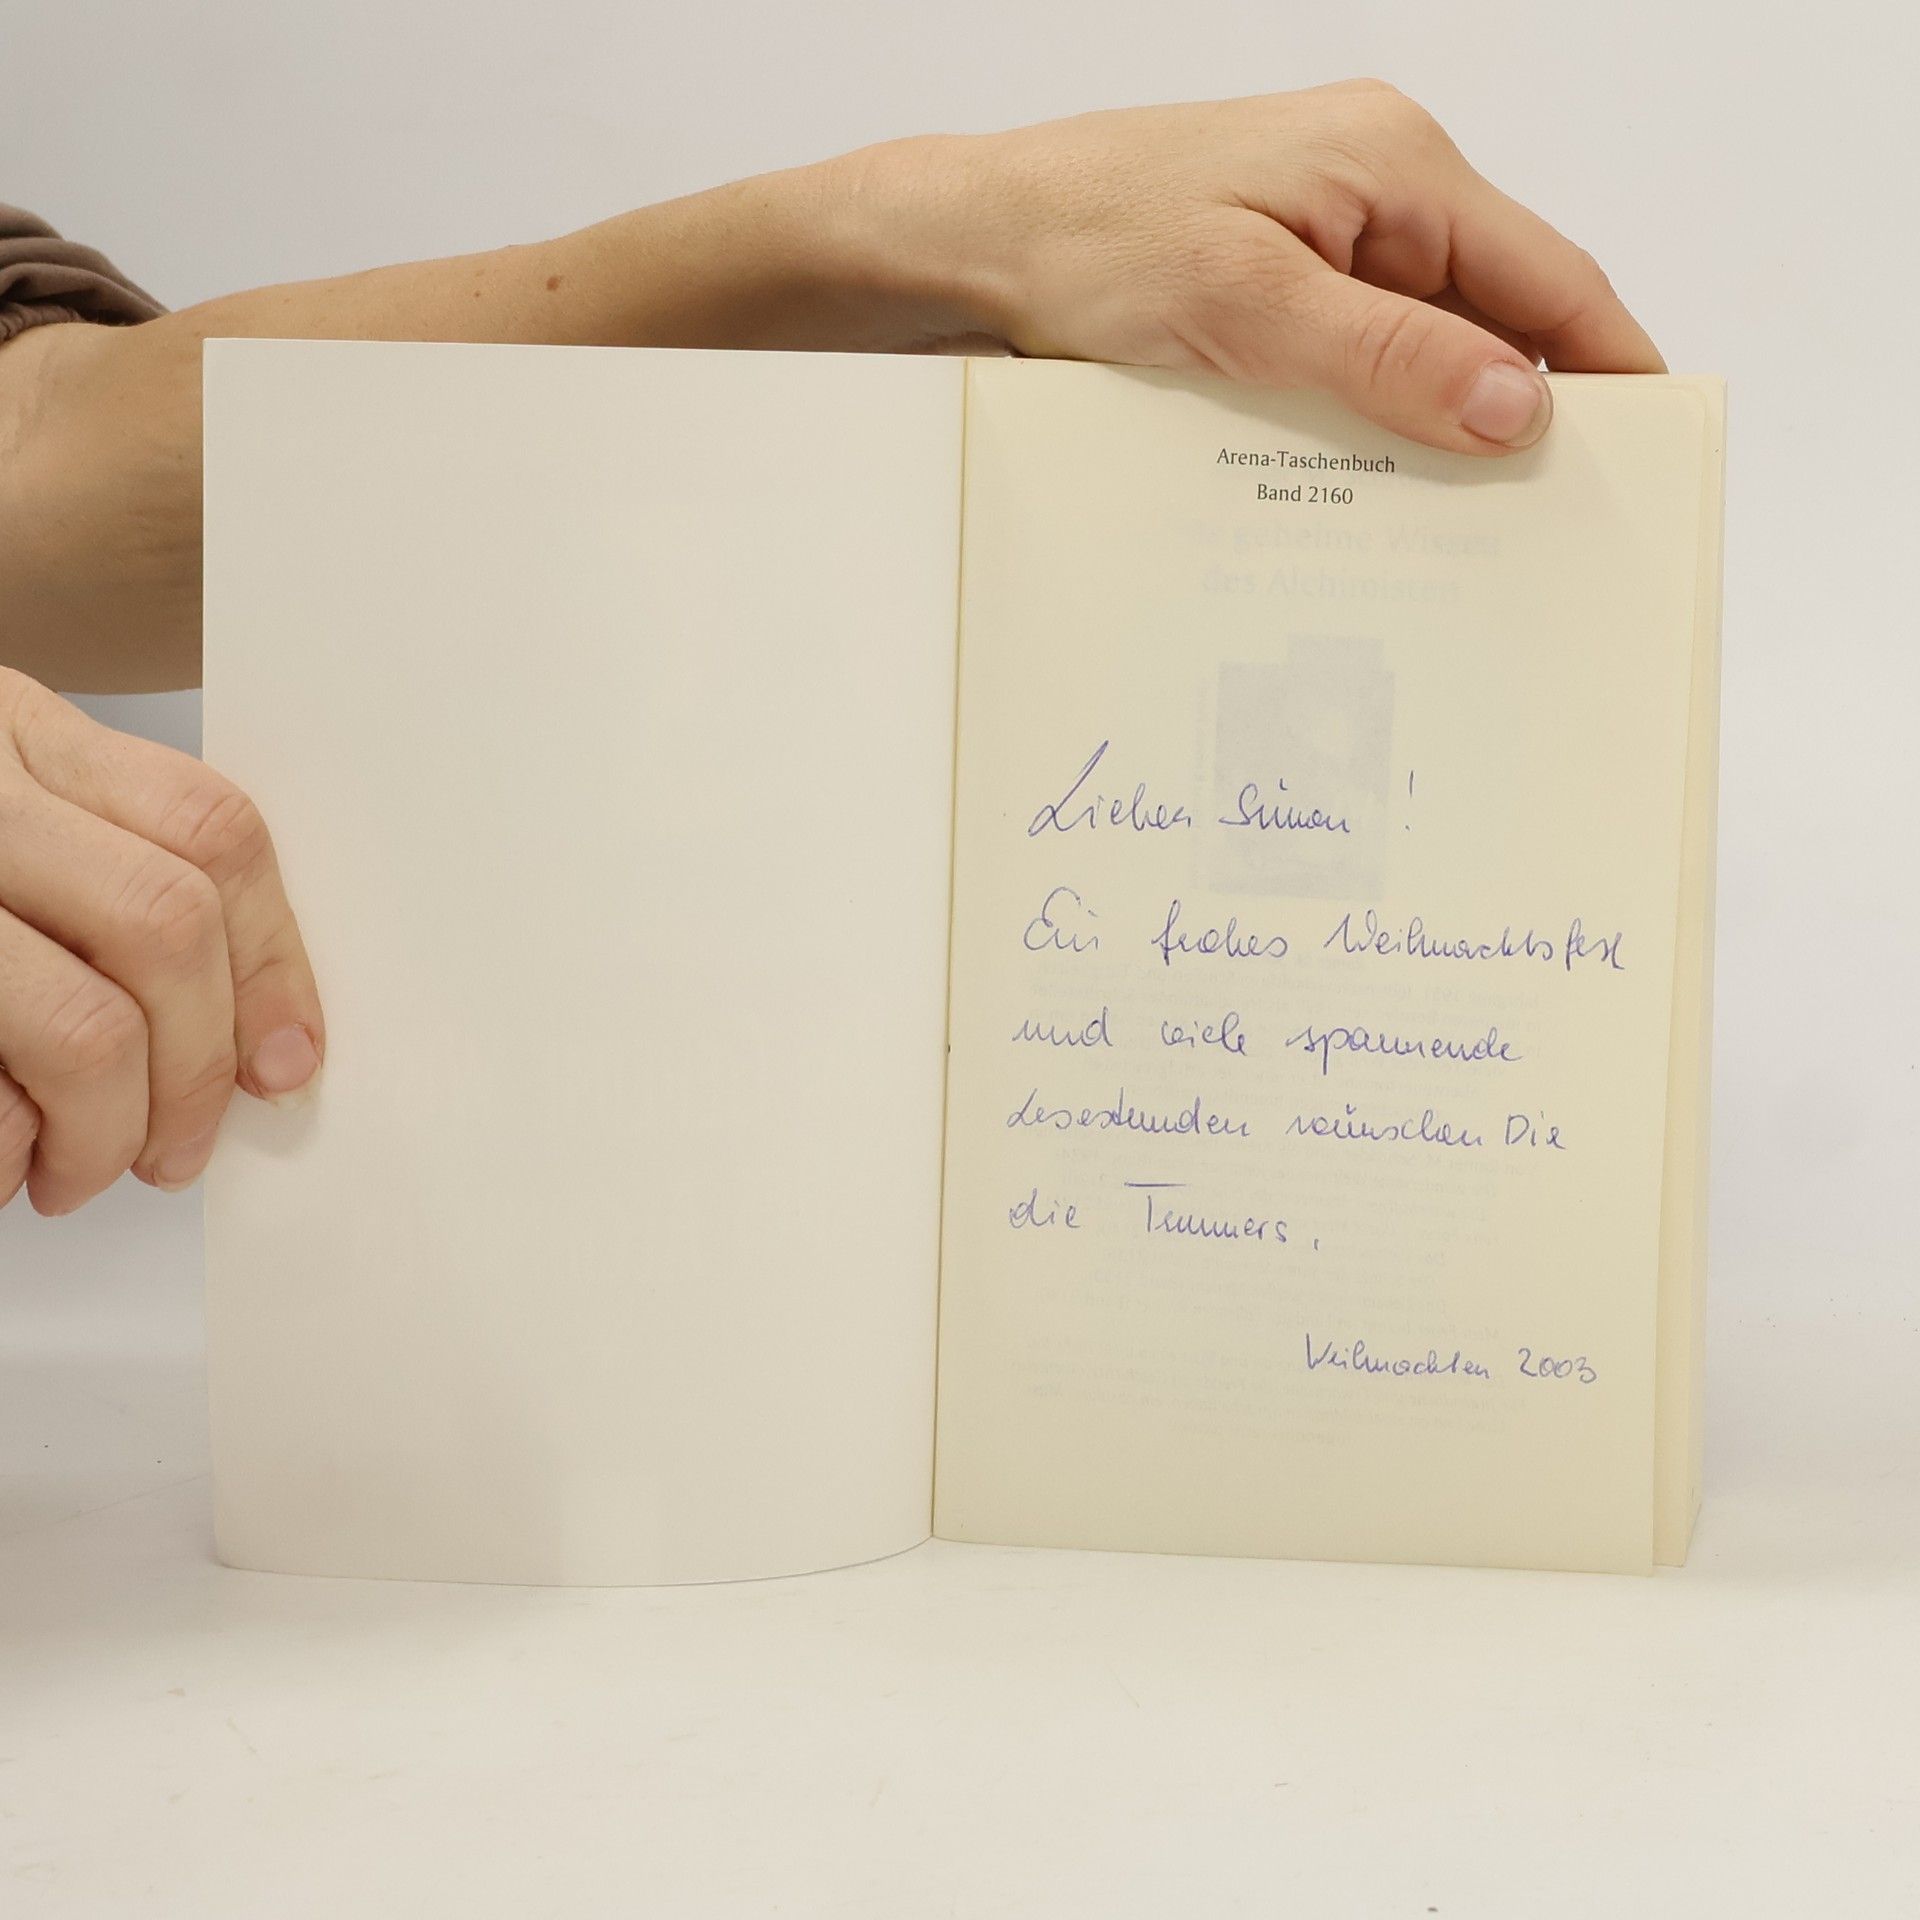 Arena-Taschenbuch
Band 2160
geheime Wissen
des Alchimisten
Lieber Simon !
Ein frohes Weihnachtsfest
und viele spannende
Lesestunden wünschen Die
die Temmers.
Weihnachten 2003